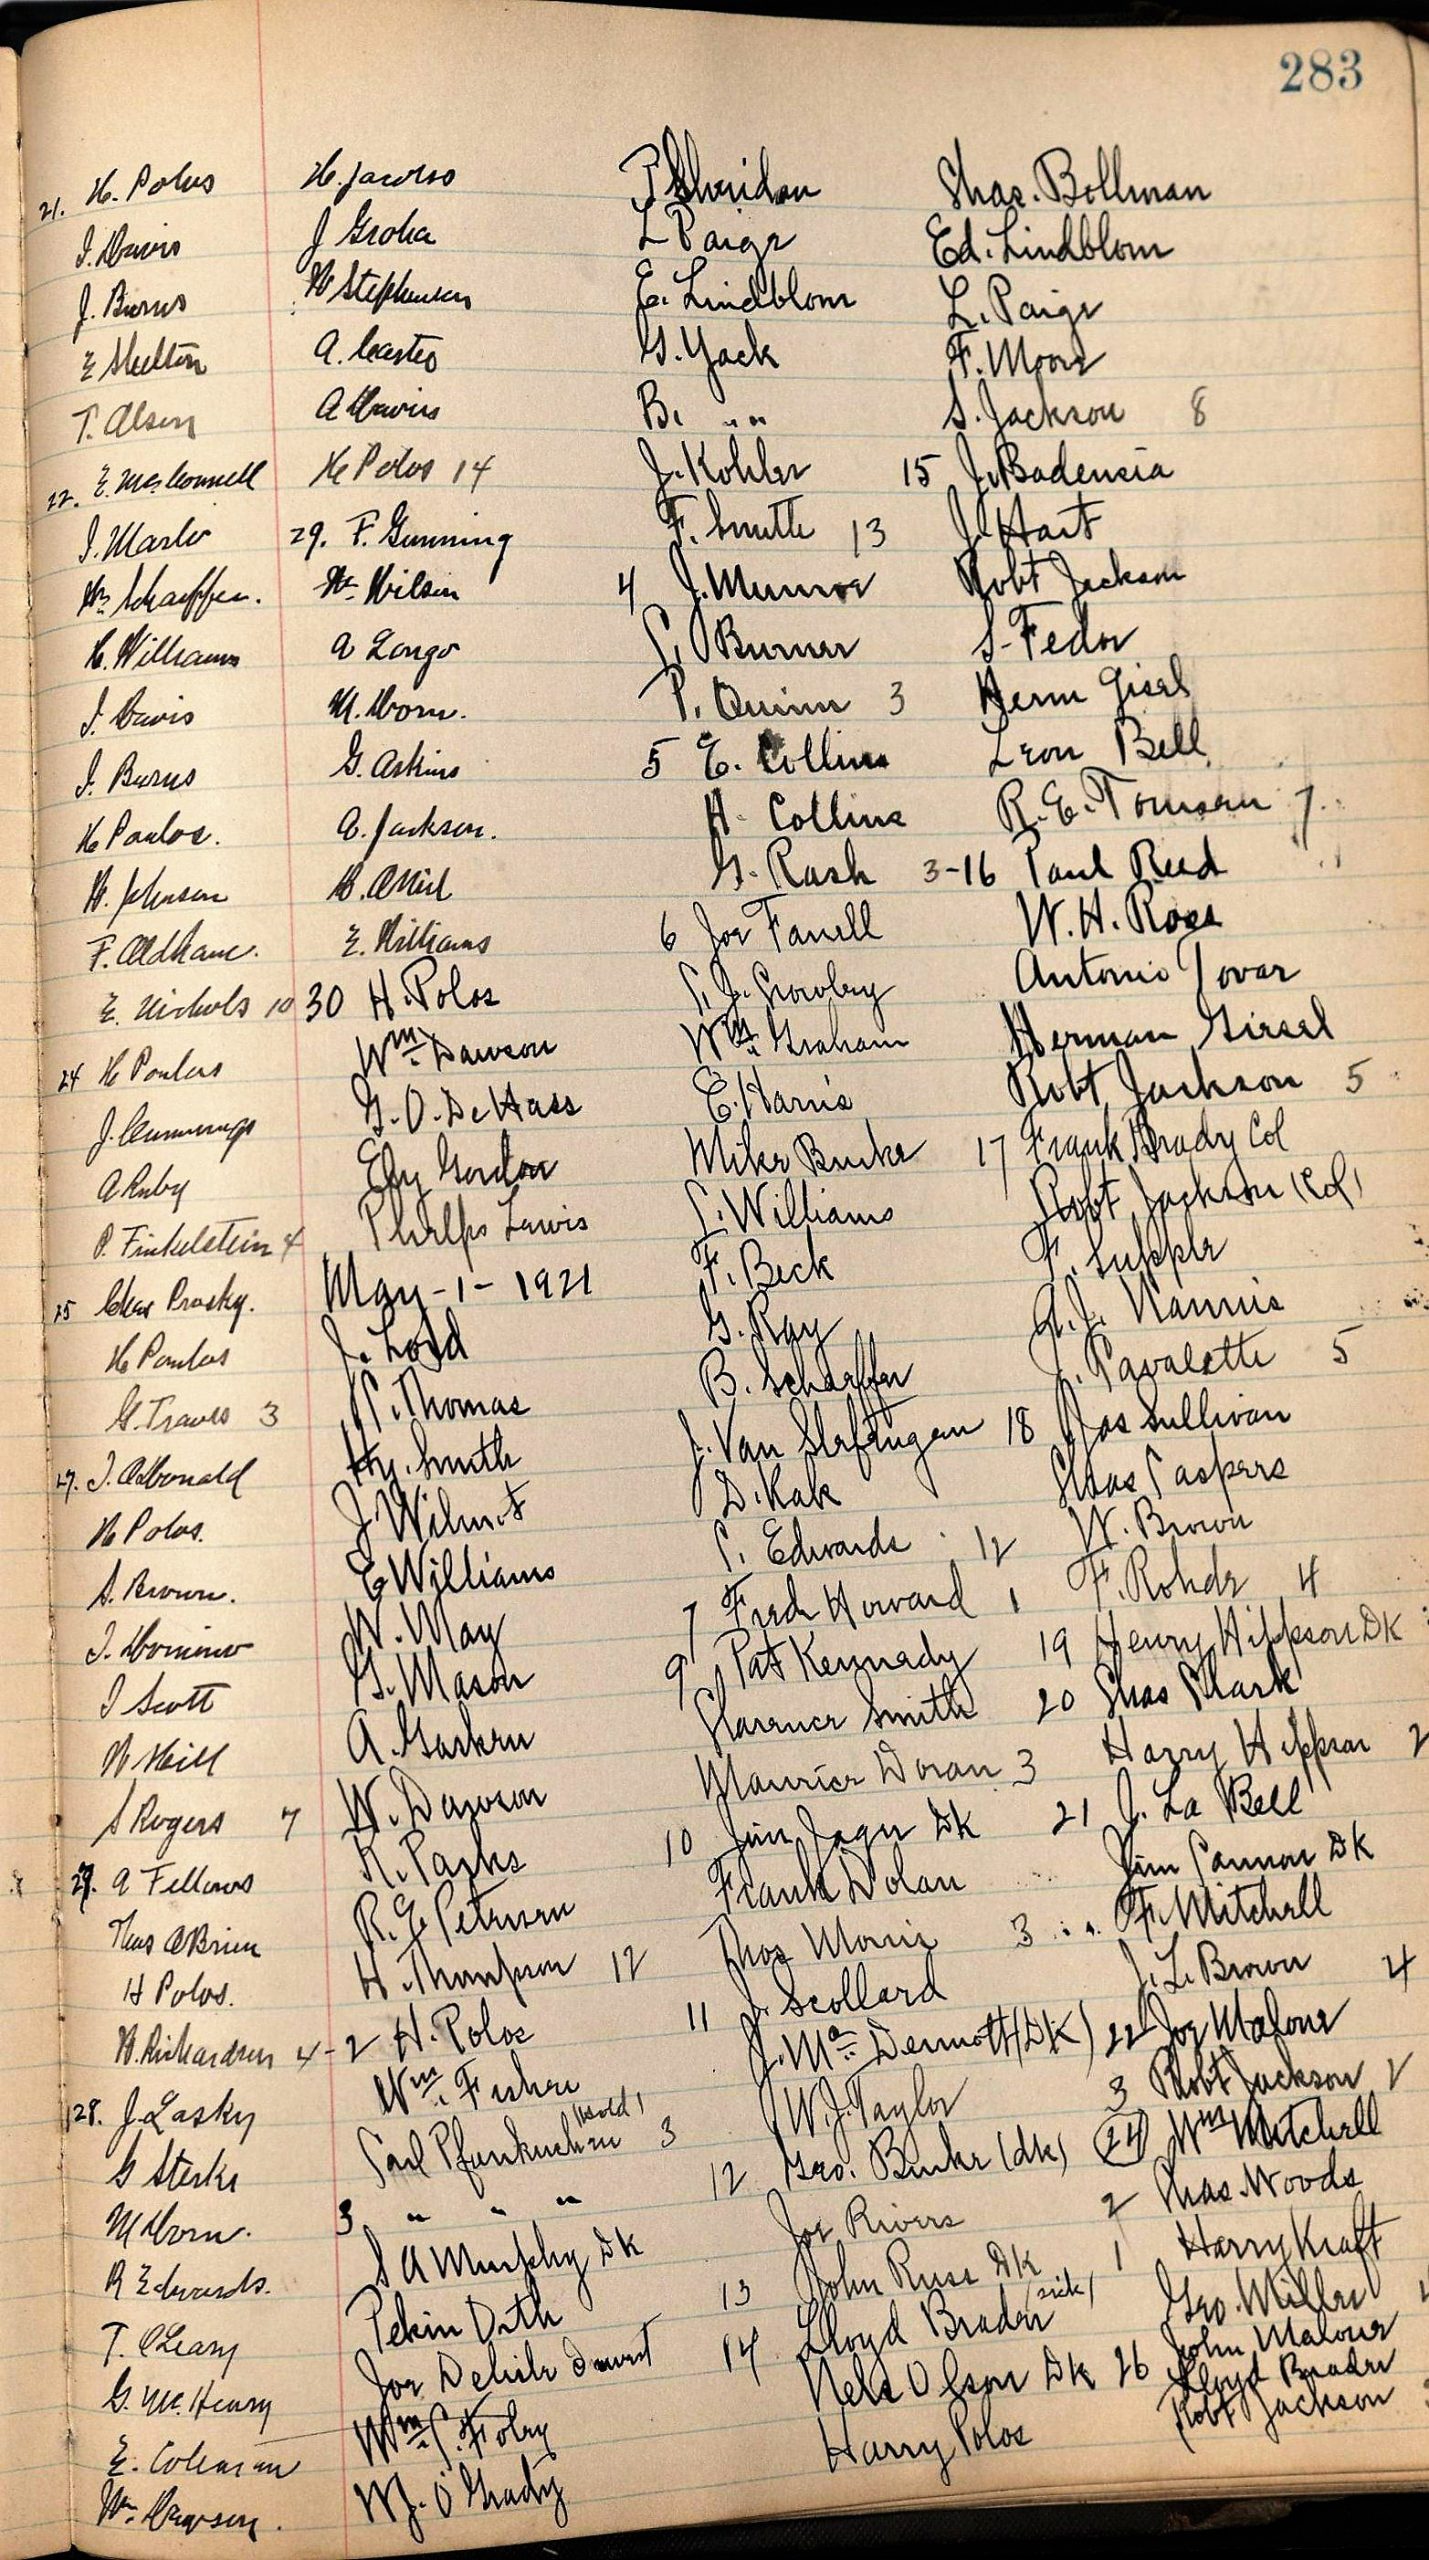 283
21. H. Polus
J. Davis
J. Burns
E Skelton
T. Olsen
22. E. McConnell
J. Marlo
Wm Schaeffer.
H. Williams
J. Davis
J. Burns
H Paulos.
H. Johnson
F. Oldham.
E. Nichols 10
24 H Poulus
J. Cummings
A Ruby
P. Finkelstein 4
25 Chas Prosky.
H Paulus
G. Traves 3
27. J. O'Donald
H Polos.
S. Brown.
J. Domino
J Scott
W Hill
S Rogers 7
27. A Fellows
Thos O'Brien
H Polos.
W. Richardson 4
28. J. Lasky
G Sterks
M Horn.
R Edwards.
T. O'Leary
G. McHenry
E. Coleman
Wm. Dawson.
H. Jacobs
J Groha
W Stephenson
A. Casteo
A Davis
H Polos 14
29. F. Gunning
Wm. Wilson
A Longo
M. Horn.
G. Askins
A. Jackson.
H. O'Neil
E. Williams
30 H. Polos
Wm. Dawson
G. O. DeHass
Ely Gordon
Phelps Lewis
May - 1 - 1921
J. Lord
P. Thomas
Hy. Smith
J Wilmot
E Williams
W. May
G. Mason
A. Garken
W. Dawson
R. Parks
R. E. Peterson
H. Thompson 12
-2 H. Polos
Wm. Fisher
Carl Pfankuchen 3
3 " " "
S A Murphy DK
Pekin Dith
Joe Delisle
Wm. C. Foley
M J. O'Grady
P Sheridan
L Paige
E. Lindblom
G. Yack
B. " "
J. Kohler
F. Smith 13
4 J. Munroe
C. Burner
P. Quinn 3
5 E. Collins
H. Collins
G. Rash 3-
6 Joe Farrell
C. J. Crowley
Wm. Graham
E. Harris
Mike Burke
C. Williams
F. Beck
G. Ray
B. Schaeffer
J. Van
D. Kak
C. Edwards 12
7 Fred Howard 1
9 Pat Kennedy
Clarence Smith
Maurice Doran 3
10 Jim Jager DK
Frank Dolan
Thos Morris 3
11 J. Scollard
J. McDermott (DK)
W. J. Taylor
12 Geo. Burke (dk)
Joe Rivers
13 John Russ DK
14 Lloyd Brader (sick)
Nels Olson DK
Harry Polos
Chas. Bollman
Ed. Lindblom
L. Paige
F. Moore
S. Jackson 8
15 J. Badensia
J. Hart
Robt Jackson
S. Fedor
Herm Gisel
Leon Bell
R. E. Tomsen 7
16 Paul Reed
W. H. Ross
Antonio Tovar
Herman Giesel
Robt. Jackson 5
17 Frank Brady Col
Robt Jackson (Col)
F. Supple
A. J. Nannis
J. Cavalette 5
18 Jas Sullivan
Chas Caspers
W. Brown
F. Rohde 4
19 Henry Hippson DK
20 Chas Clark
Harry Hippson 2
21 J. La Bell
Jim Cannon DK
F. Mitchell
J. L. Brown 4
22 Joe Malone
3 Robt Jackson 2
24 Wm Mitchell
2 Chas. Woods
1 Harry Kraft
Geo. Miller
26 John Malone
Lloyd Brader
Robt Jackson